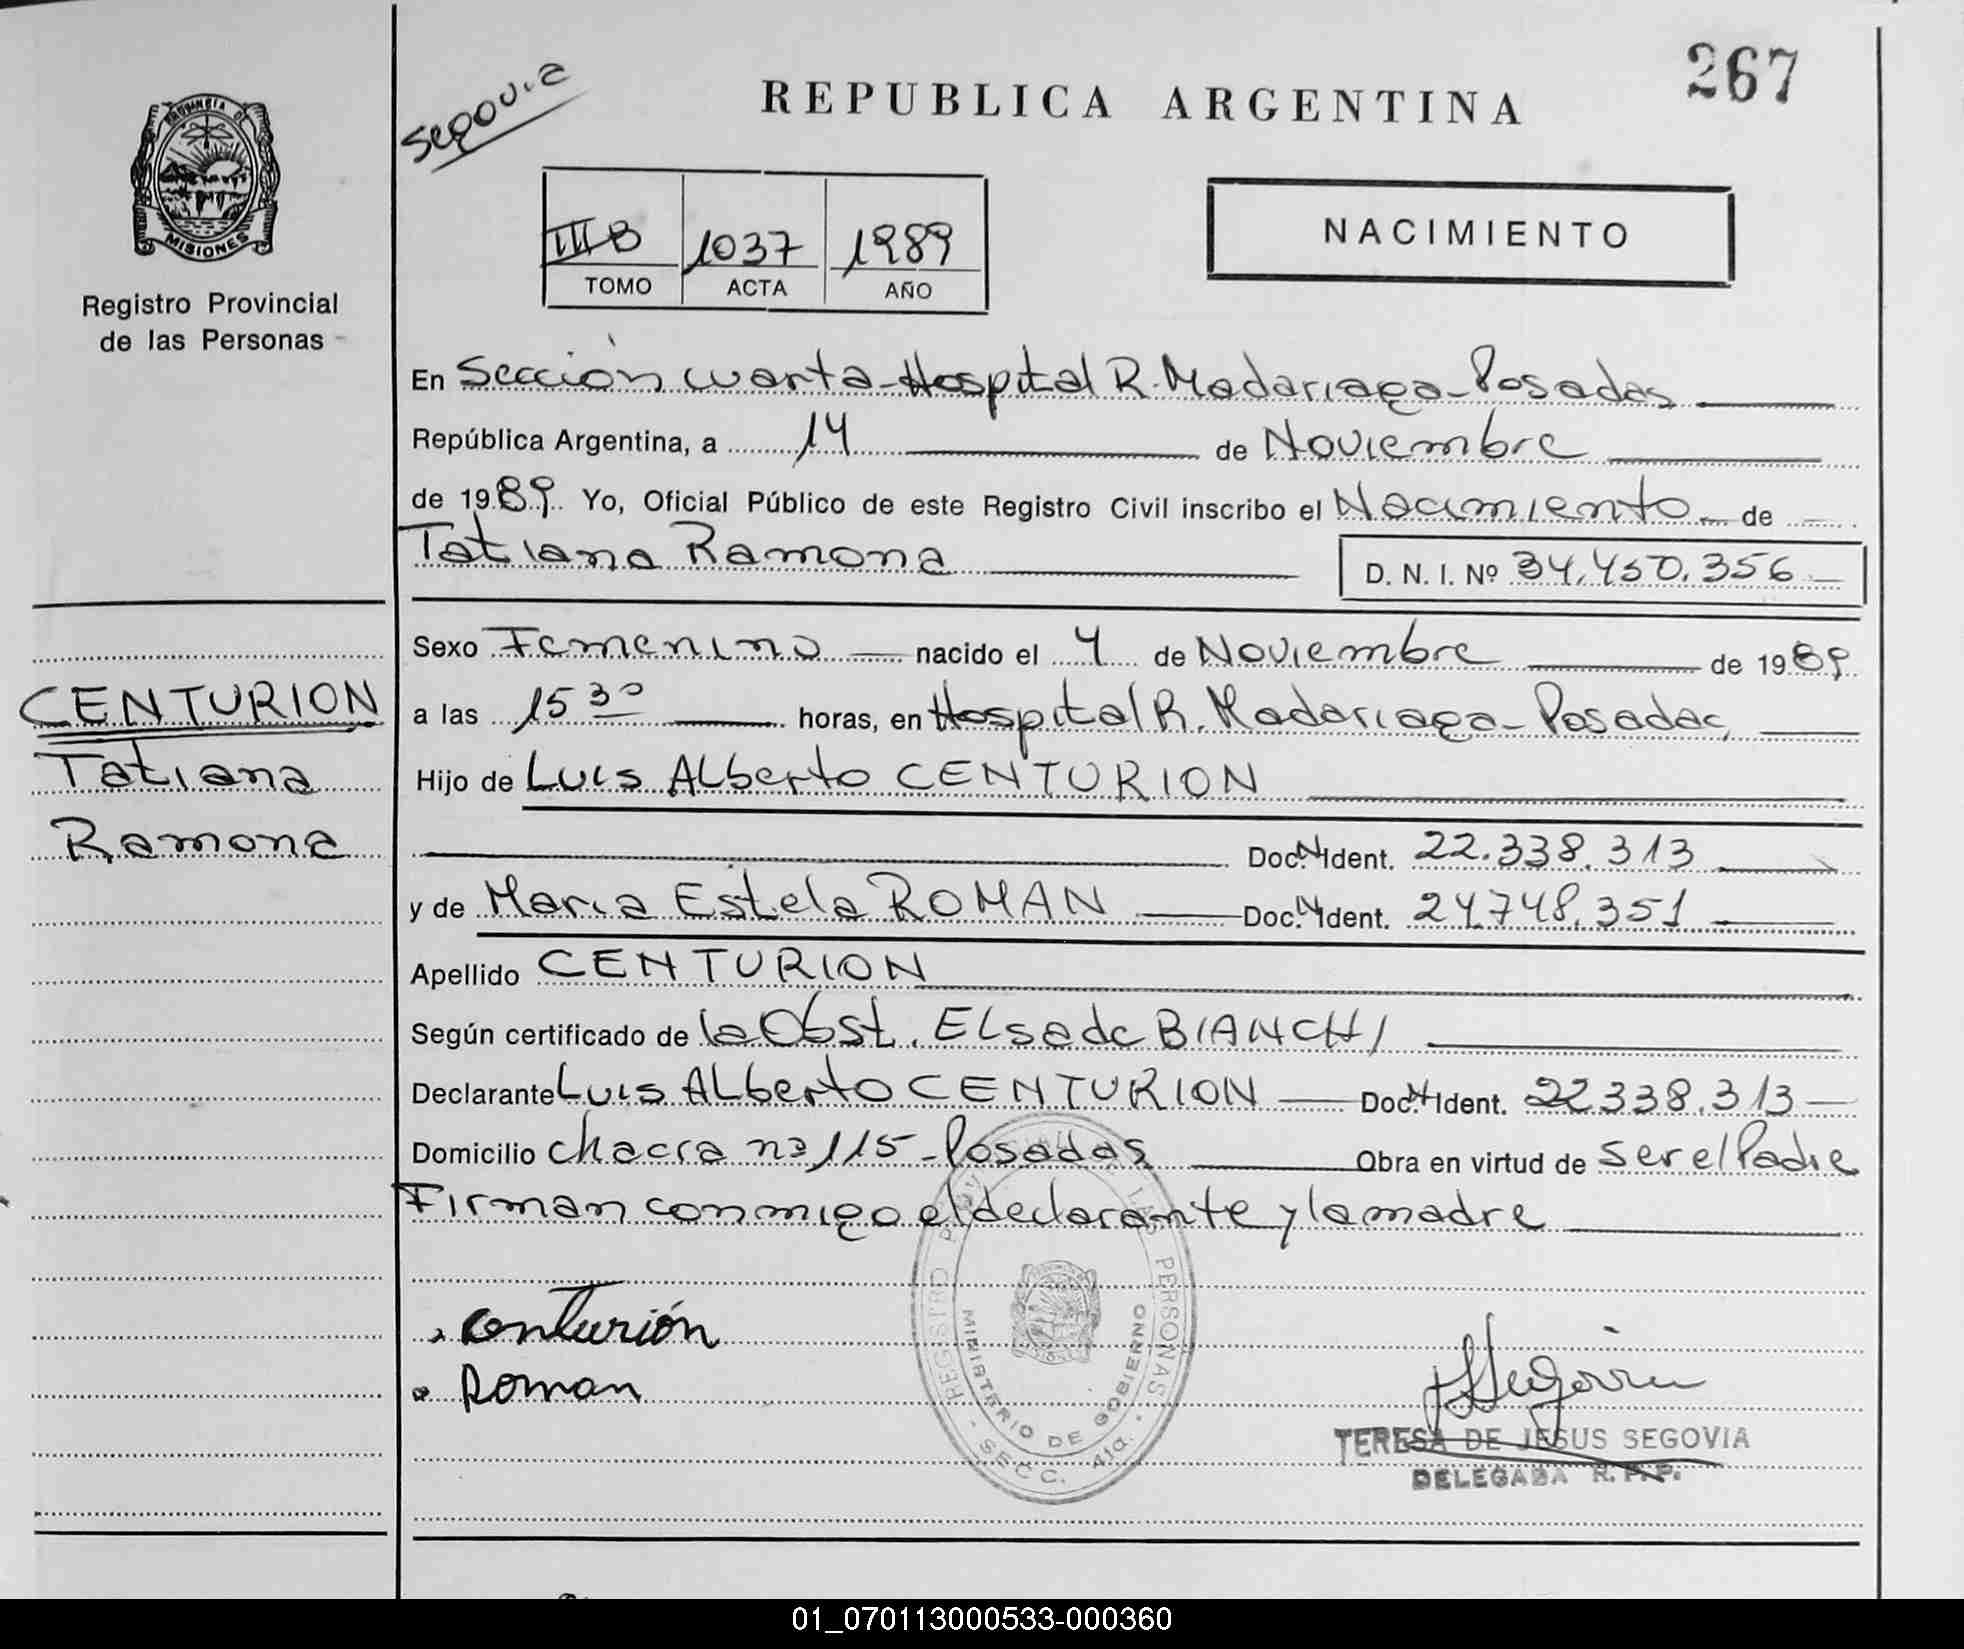 267
REPUBLICA ARGENTINA
Segovia
PROVINCIA DE
MISIONES
Registro Provincial
de las Personas
III B 1037 1989
TOMO ACTA AÑO
NACIMIENTO
En Sección cuarta - Hospital R. Madariaga - Posadas
República Argentina, a 14 de Noviembre
de 1989. Yo, Oficial Público de este Registro Civil inscribo el Nacimiento de
Tatiana Ramona D. N. I. Nº 34.450.356
Sexo Femenino nacido el 4 de Noviembre de 1989
a las 15 30 horas, en Hospital R. Madariaga - Posadas,
Hijo de Luis Alberto CENTURION
Doc. N Ident. 22.338.313
y de Maria Estela ROMAN Doc. N Ident. 24.748.351
Apellido CENTURION
Según certificado de la Obst. Elsa de BIANCHI
Declarante Luis Alberto CENTURION Doc. N Ident. 22338.313
Domicilio chacra nº 115 - Posadas Obra en virtud de ser el Padre
Firman conmigo el declarante y la madre
CENTURION
Tatiana
Ramona
Centurión
Roman
REGISTRO PROVINCIAL DE LAS PERSONAS
MINISTERIO DE GOBIERNO
- SECC. 4ta. -
Segovia
TERESA DE JESUS SEGOVIA
DELEGADA R. P. P.
01_070113000533-000360